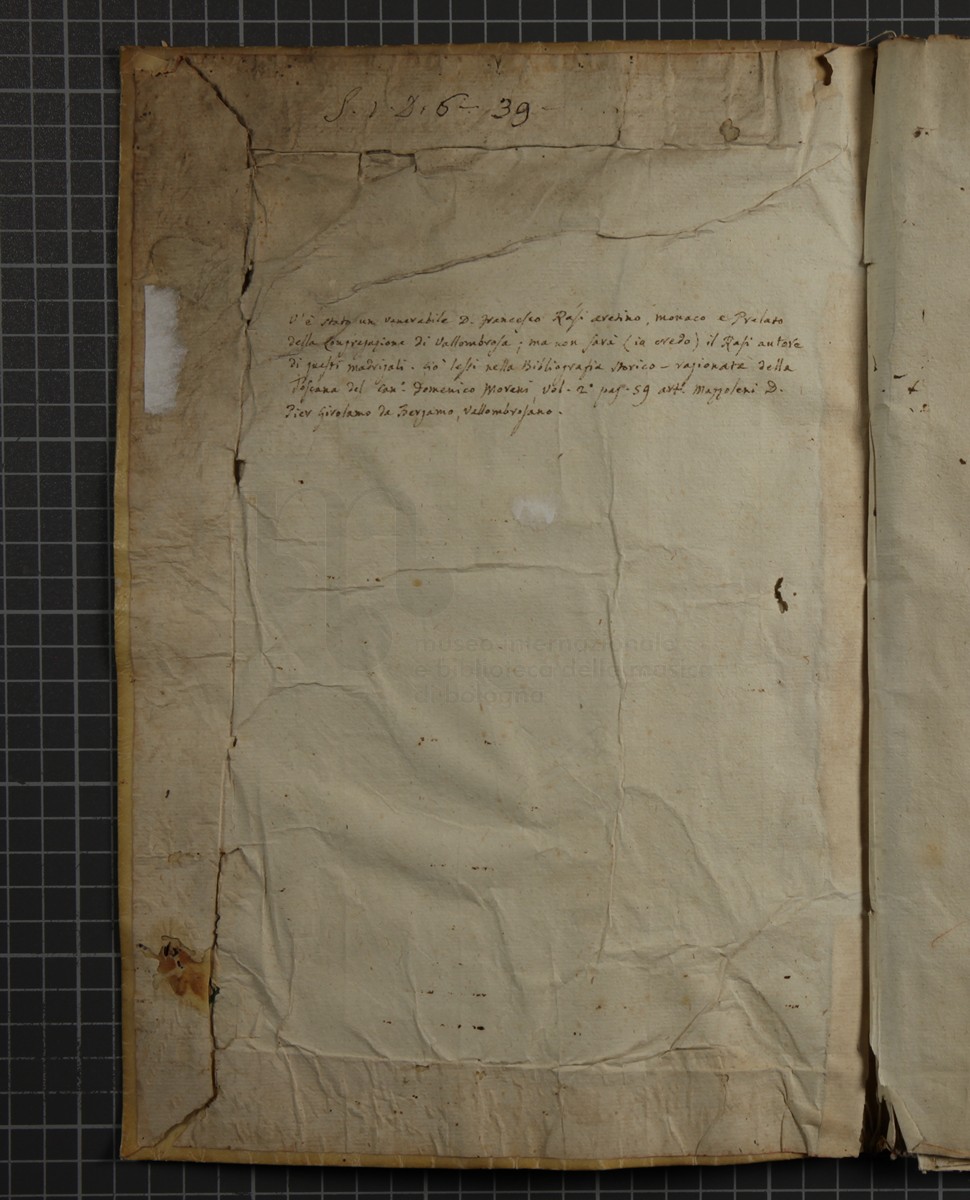 S. 1. D. 6 - 39 -
V'è stato un venerabile D. Francesco Rasi aretino, monaco e Prelato
della Congregazione di Vallombrosa; ma non sarà (io credo) il Rasi autore
di questi madrigali. Ciò lessi nella Bibliografia storico-ragionata della
Toscana del Can.º Domenico Moreni, Vol. 2º pag. 59 art.º Mazzoleni D.
Pier Girolamo da Bergamo, Vallombrosano.
museo internazionale
e biblioteca della musica
di bologna